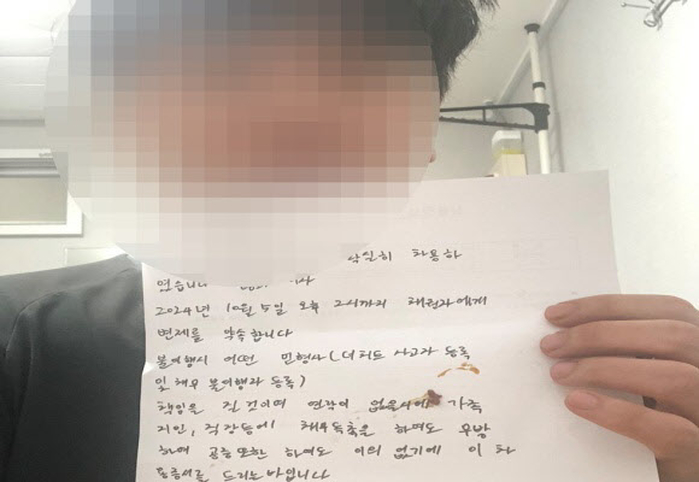 확실히 차용하
였습니다
2024년 10월 5일 오후 2시까지 채권자에게
변제를 약속합니다
불이행시 어떤 민형사(더치트 사고자 등록
및 채무 불이행자 등록)
책임을 질 것이며 연락이 없을시에 가족
지인, 직장등에 채무독촉을 하여도 무방
하며 공증또한 하여도 이의 없기에 이 차
용증서를 드리는바입니다